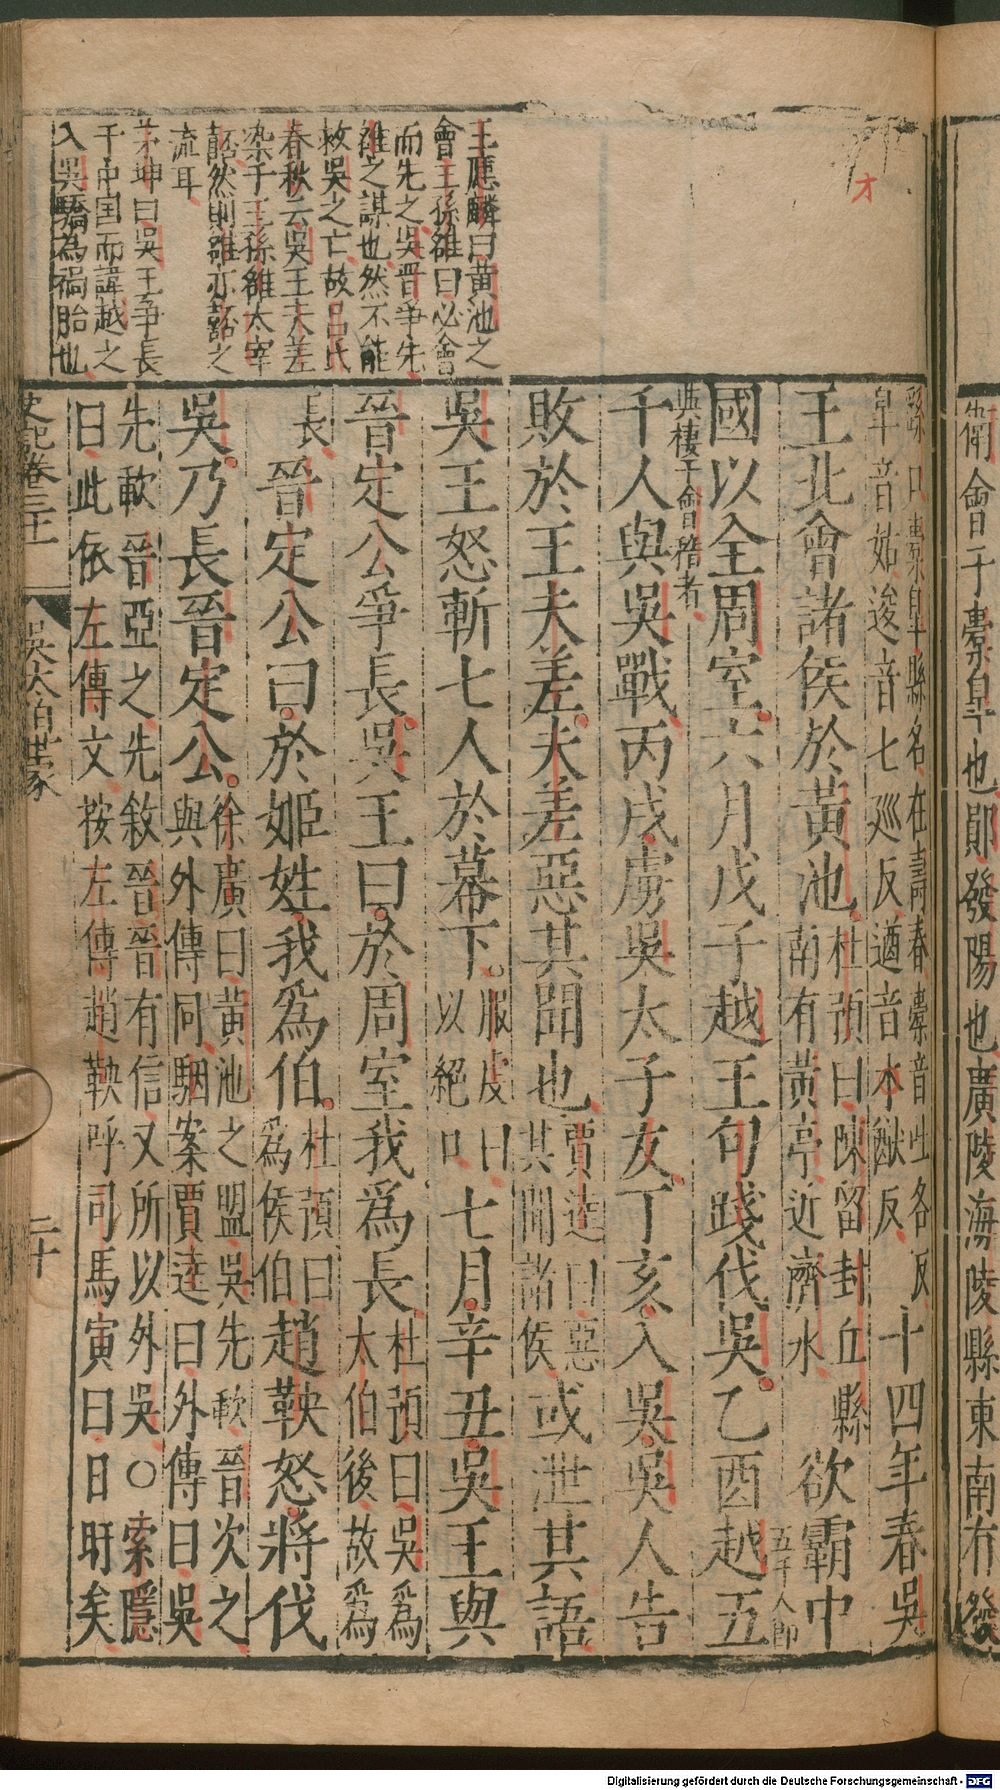 衛會于橐皐也鄖發陽也廣陵海陵縣東南有發
繇口橐皐縣名在壽春橐音吒各反
皐音姑逡音七巡反遒音才猷反
十四年春吳
王北會諸侯於黃池
杜預曰陳留封丘縣
南有黃亭近濟水
欲霸中
國以全周室六月戊子越王句踐伐吳乙酉越五
五千人卽
與棲于會稽者
千人與吳戰丙戌虜吳太子友丁亥入吳吳人告
敗於王夫差夫差惡其聞也
賈逵曰惡
其聞諸侯
或泄其語
吳王怒斬七人於幕下
服虔曰
以絕口
七月辛丑吳王與
晉定公爭長吳王曰於周室我爲長
杜預曰吳爲
太伯後故爲
長
晉定公曰於姬姓我爲伯
杜預曰
爲侯伯
趙鞅怒將伐
吳乃長晉定公
徐廣曰黃池之盟吳先歃晉次之
與外傳同駰案賈逵曰外傳曰吳
先歃晉亞之先敘晉晉有信又所以外吳○索隱
曰此依左傳文按左傳趙鞅呼司馬寅曰日旰矣
史記卷三十一
吳太伯世家
二十
王應麟曰黃池之
會王孫雒曰必會
而先之吳晉爭先
雒之謀也然不能
救吳之亡故呂氏
春秋云吳王夫差
染于王孫雒太宰
嚭然則雒亦嚭之
流耳
茅坤曰吳王爭長
于中囯而諱越之
入吳驕為禍胎也
才
Digitalisierung gefördert durch die Deutsche Forschungsgemeinschaft - DFG